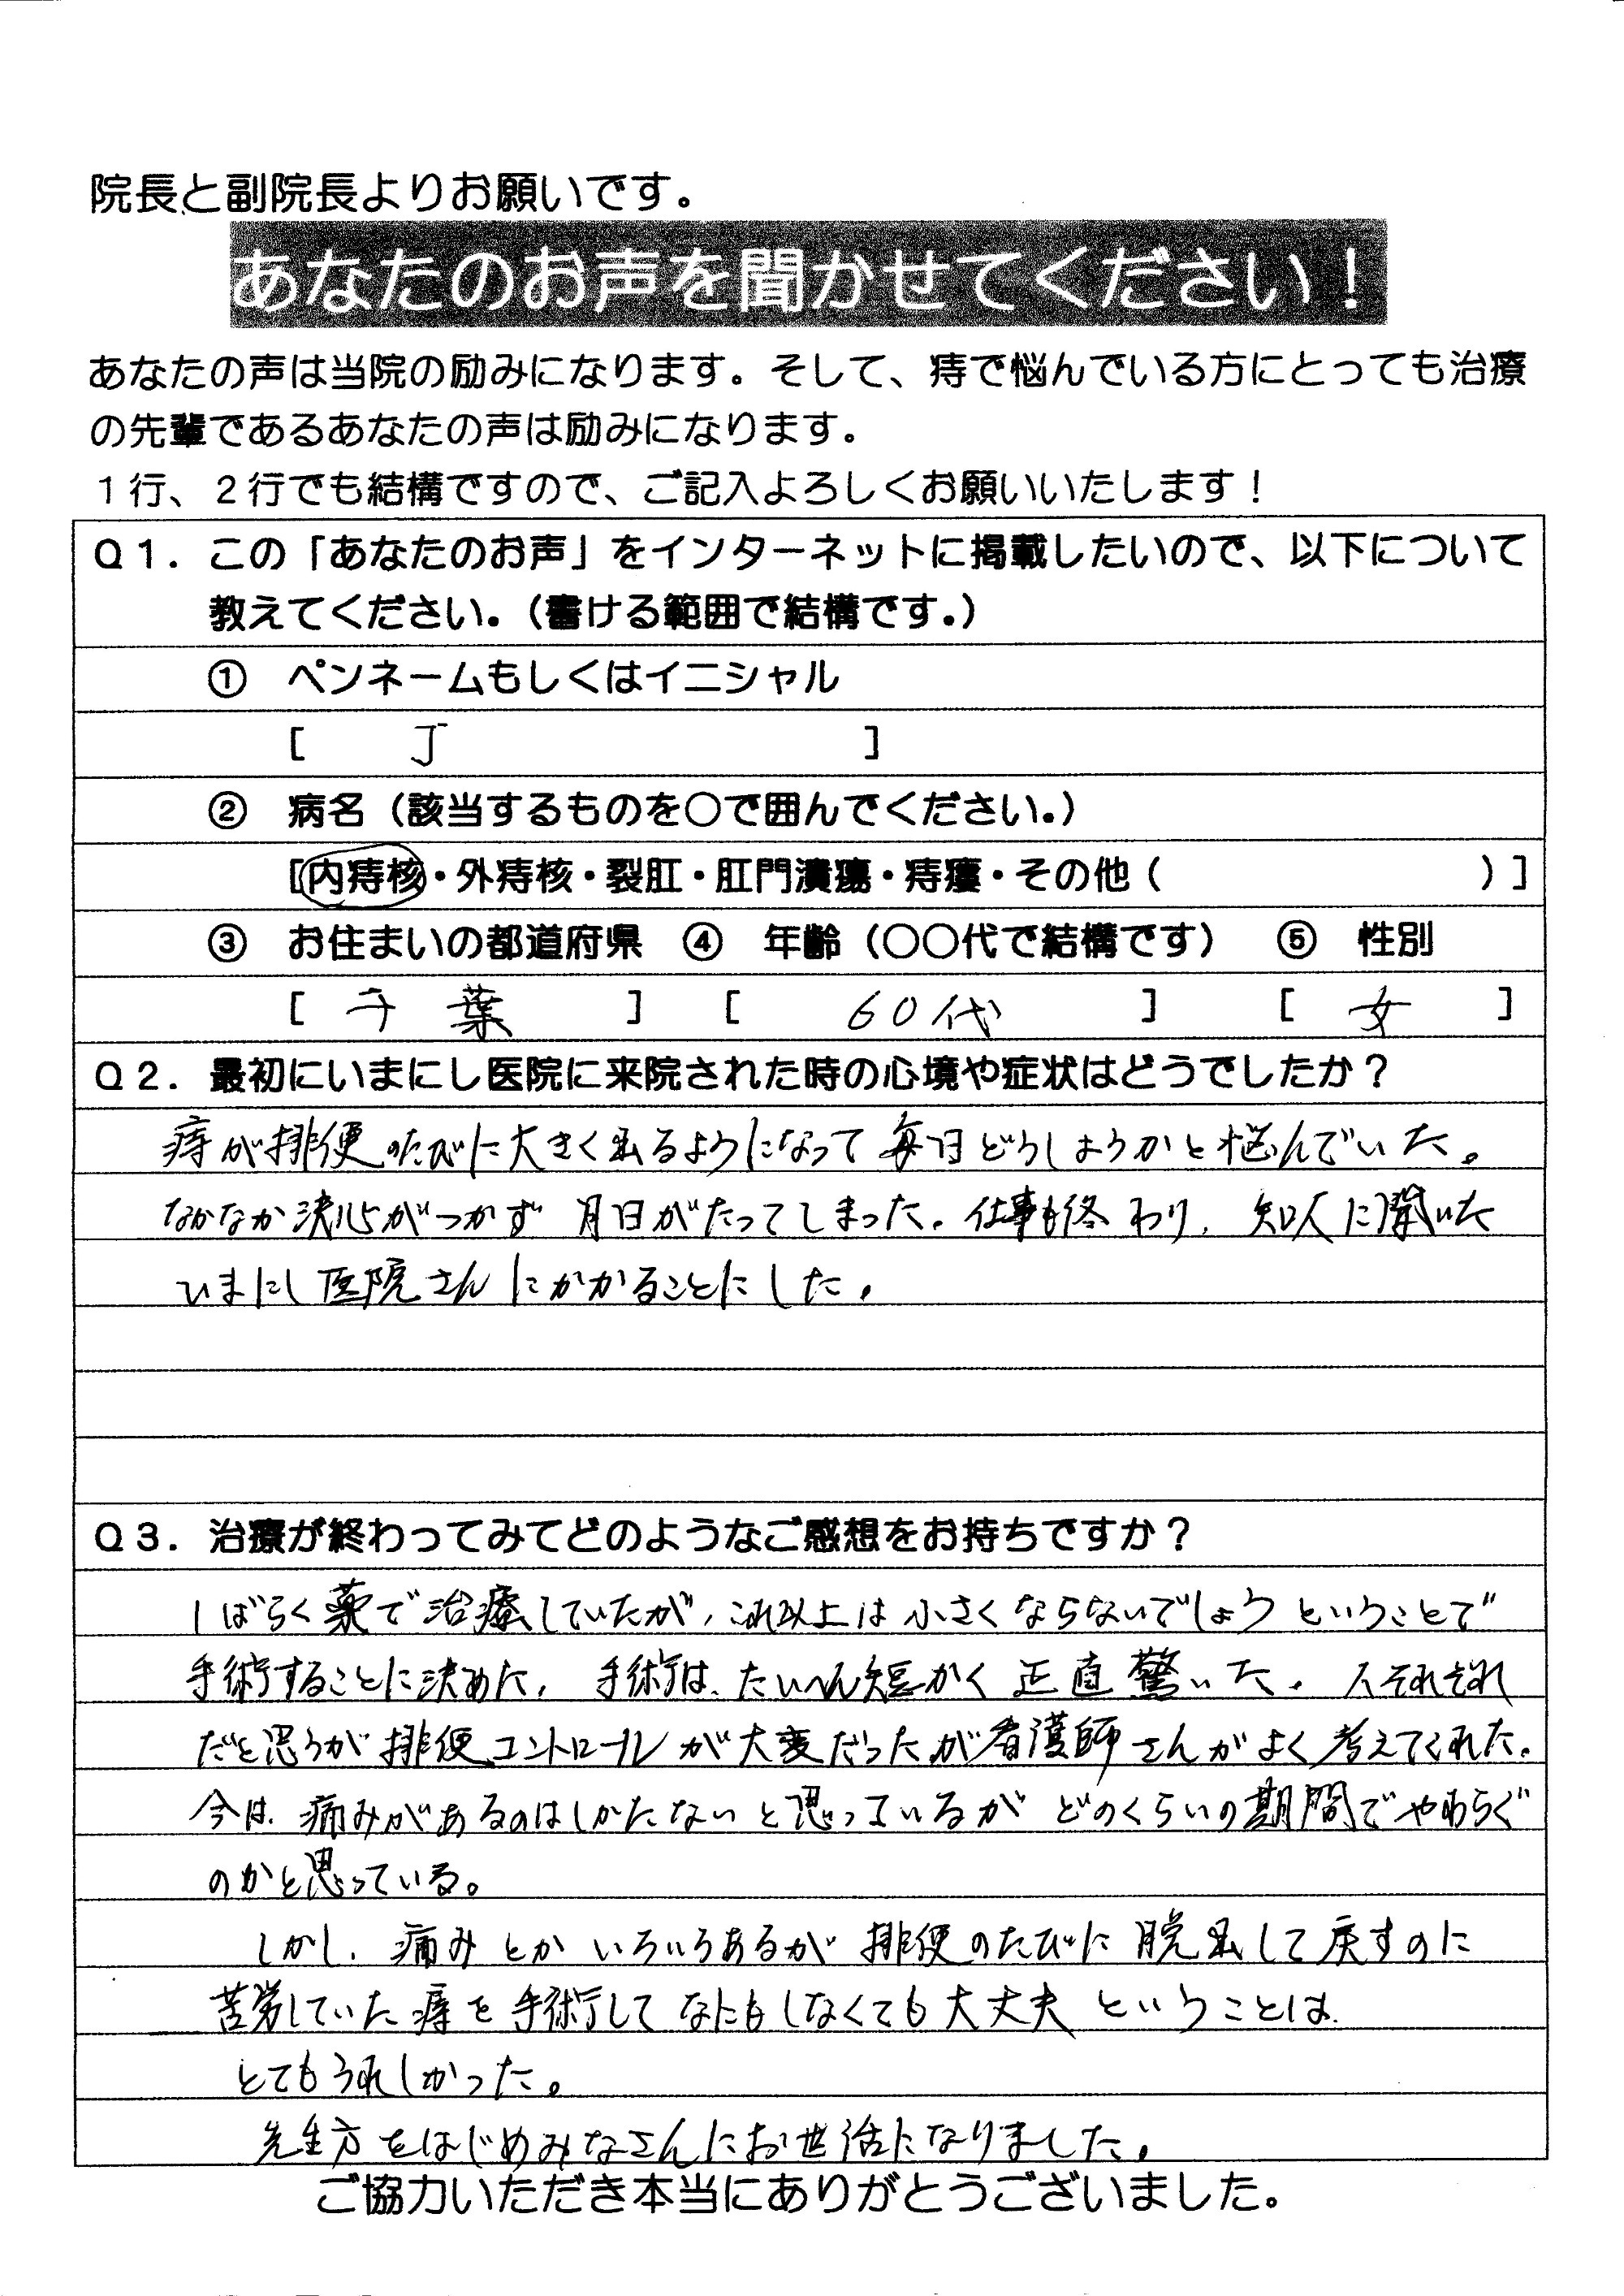 院長と副院長よりお願いです。
あなたのお声を聞かせてください！
あなたの声は当院の励みになります。そして、痔で悩んでいる方にとっても治療
の先輩であるあなたの声は励みになります。
１行、２行でも結構ですので、ご記入よろしくお願いいたします！
Ｑ１．この「あなたのお声」をインターネットに掲載したいので、以下について
教えてください。（書ける範囲で結構です。）
① ペンネームもしくはイニシャル
[ J ]
② 病名（該当するものを○で囲んでください。）
[内痔核・外痔核・裂肛・肛門潰瘍・痔瘻・その他（ ）]
③ お住まいの都道府県 ④ 年齢（○○代で結構です） ⑤ 性別
[ 千葉 ] [ 60代 ] [ 女 ]
Ｑ２．最初にいまにし医院に来院された時の心境や症状はどうでしたか？
痔が排便のたびに大きく出るようになって毎日どうしようかと悩んでいた。
なかなか決心がつかず月日がたってしまった。仕事も終わり、知人に聞いた
いまにし医院さんにかかることにした。
Ｑ３．治療が終わってみてどのようなご感想をお持ちですか？
しばらく薬で治療していたが、これ以上は小さくならないでしょうということで
手術することに決めた。手術は、たいへん短かく正直驚いた。人それぞれ
だと思うが排便コントロールが大変だったが看護師さんがよく考えてくれた。
今は、痛みがあるのはしかたないと思っているがどのくらいの期間でやわらぐ
のかと思っている。
しかし、痛みとかいろいろあるが排便のたびに脱出して戻すのに
苦労していた痔を手術してなにもしなくても大丈夫ということは、
とてもうれしかった。
先生方をはじめみなさんにお世話になりました。
ご協力いただき本当にありがとうございました。